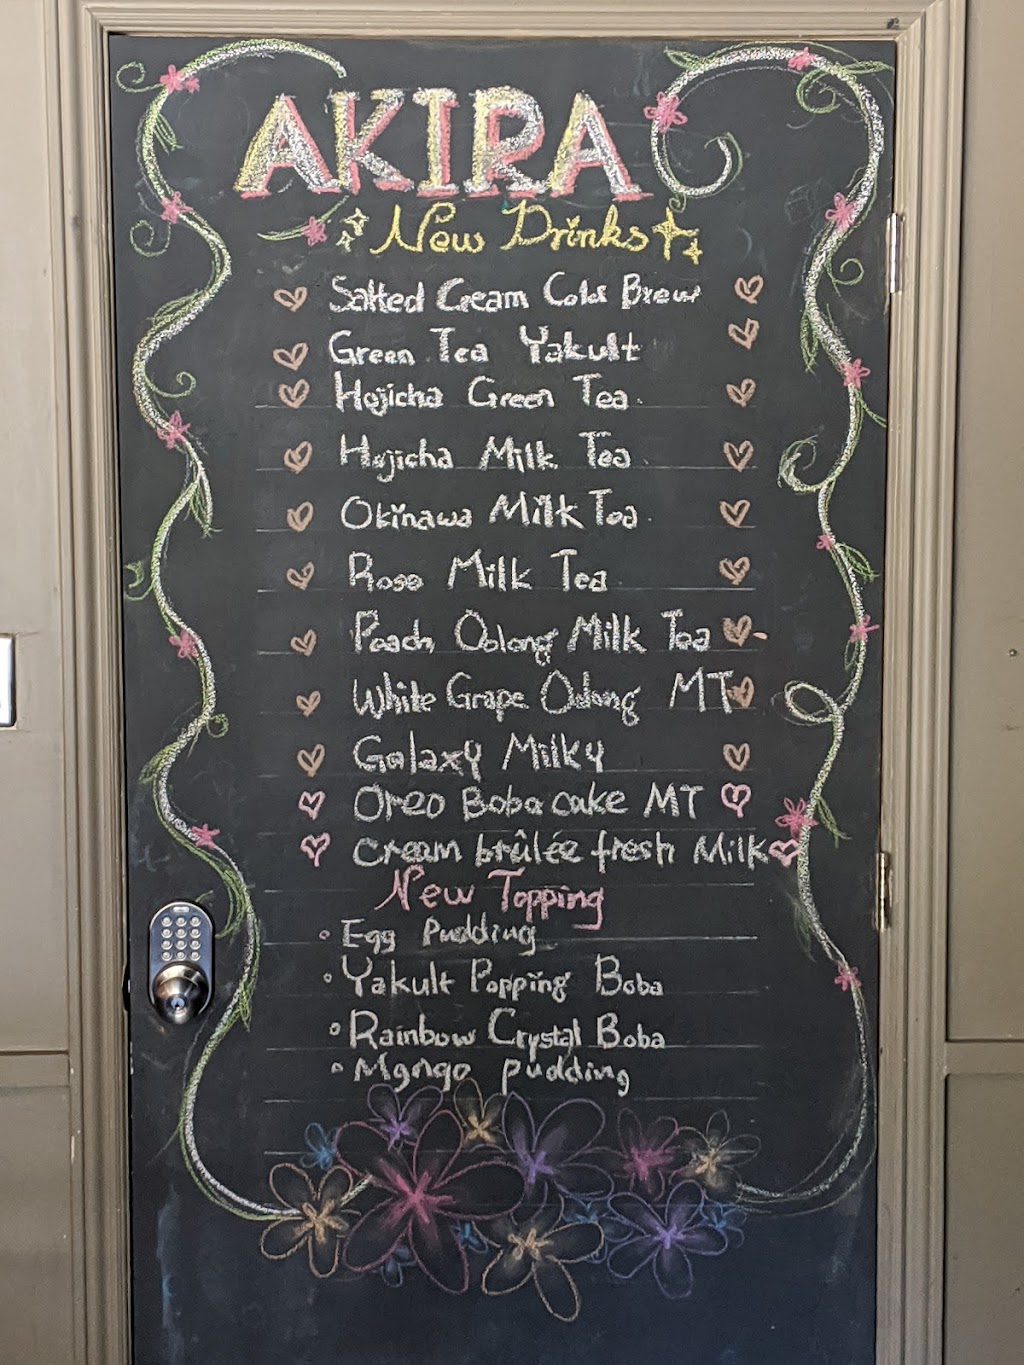 AKIRA
New Drinks
Salted Cream Cold Brew
Green Tea Yakult
Hojicha Green Tea.
Hojicha Milk Tea
Okinawa Milk Tea.
Rose Milk Tea
Peach Oolong Milk Tea
White Grape Oolong MT
Galaxy Milky
Oreo Boba cake MT
cream brûlée fresh Milk
New Topping
• Egg Pudding
• Yakult Popping Boba
• Rainbow Crystal Boba
• Mango pudding